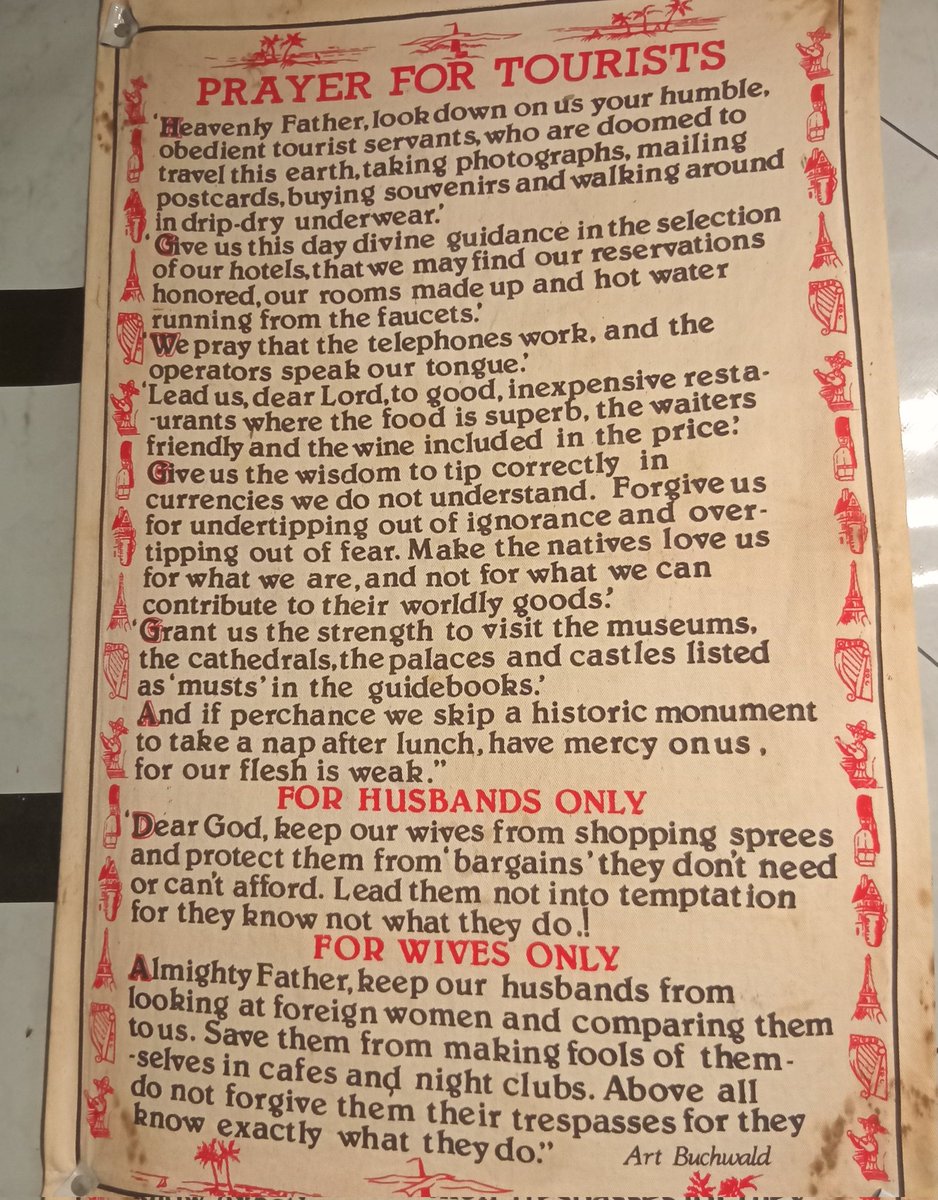 PRAYER FOR TOURISTS
'Heavenly Father, look down on us your humble,
obedient tourist servants, who are doomed to
travel this earth, taking photographs, mailing
postcards, buying souvenirs and walking around
in drip-dry underwear.'
'Give us this day divine guidance in the selection
of our hotels, that we may find our reservations
honored, our rooms made up and hot water
running from the faucets.'
'We pray that the telephones work, and the
operators speak our tongue.'
'Lead us, dear Lord, to good, inexpensive resta-
-urants where the food is superb, the waiters
friendly and the wine included in the price.'
Give us the wisdom to tip correctly in
currencies we do not understand. Forgive us
for undertipping out of ignorance and over-
tipping out of fear. Make the natives love us
for what we are, and not for what we can
contribute to their worldly goods.'
'Grant us the strength to visit the museums,
the cathedrals, the palaces and castles listed
as 'musts' in the guidebooks.'
And if perchance we skip a historic monument
to take a nap after lunch, have mercy on us,
for our flesh is weak."
FOR HUSBANDS ONLY
'Dear God, keep our wives from shopping sprees
and protect them from 'bargains' they don't need
or can't afford. Lead them not into temptation
for they know not what they do.!
FOR WIVES ONLY
Almighty Father, keep our husbands from
looking at foreign women and comparing them
to us. Save them from making fools of them-
-selves in cafes and night clubs. Above all
do not forgive them their trespasses for they
know exactly what they do."
Art Buchwald